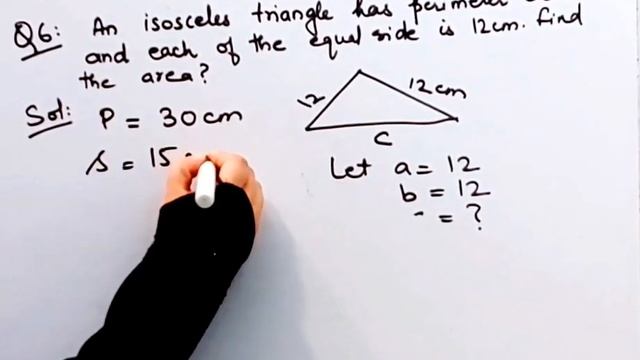 Q6: An isosceles triangle has perimeter
and each of the equal side is 12cm. find
the area?
Sol: P = 30cm
12
12cm
C
s = 15
Let a = 12
b = 12
= ?